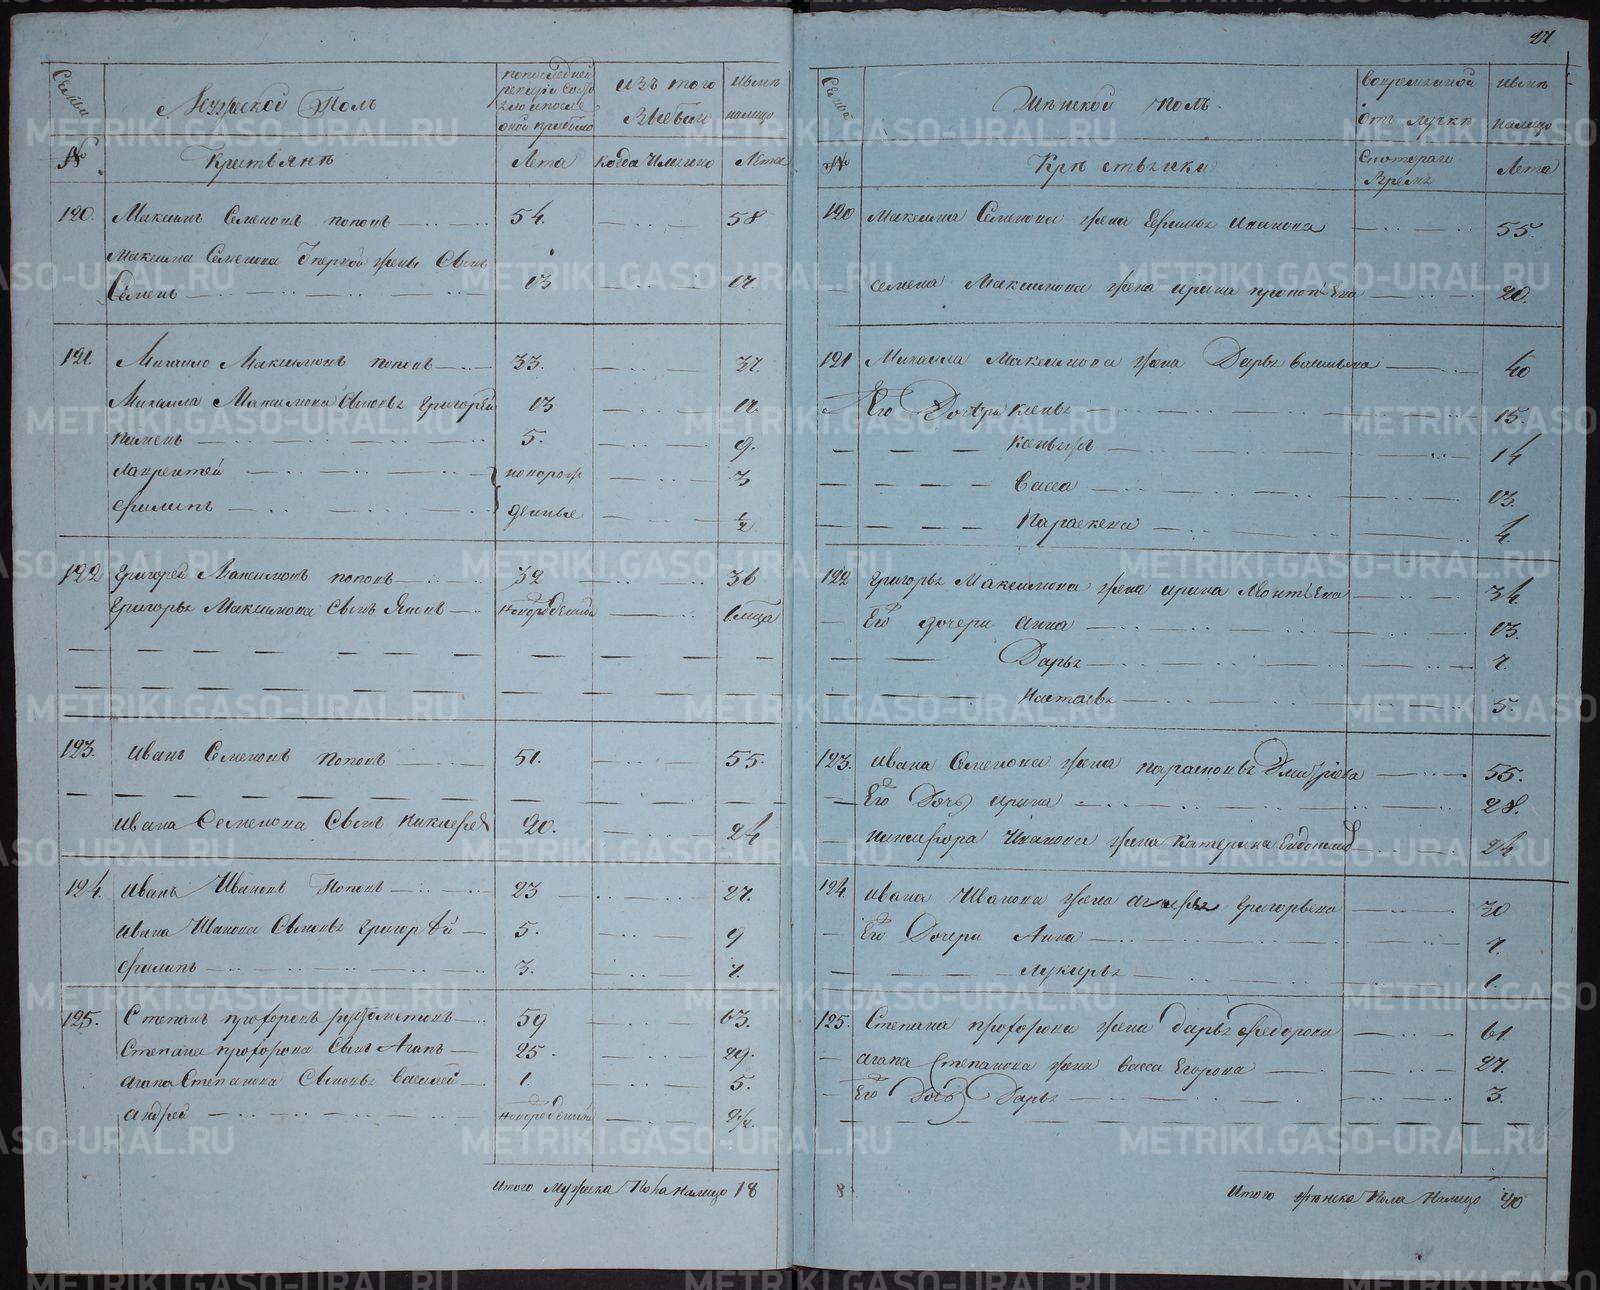 27
Семьи
Мужеской Полъ
изъ того
Выбыло
Нынѣ
налицо
№
Крестьянѣ
Лета
когда Именно
Лета
120. Максимъ Семеновъ поповъ 54. 58
Максима Семенова Первой жены Сынъ
Семенъ 13 17
121. Михаило Максимовъ поповъ 33. 37.
Михаила Максимова Сыновья Григорей 13 17.
пименъ 5. 9.
лаврентей новорож 3
филипъ денные 1/2
122 Григорей Максимовъ поповъ 32 36
Григорья Максимова Сынъ Яковъ новорожденной
123. иванъ Семеновъ поповъ 51. 55.
ивана Семенова Сынъ Никифоръ 20. 24
124. иванъ Ивановъ Поповъ 23 27.
ивана Иванова Сыновья Григорѣй 5. 9
филипъ 3. 7.
125. Степанъ прохоровъ 59 63.
Степана прохорова Сынъ Агапъ 25. 29.
агапа Степанова Сыновья Василей 1. 5.
андрей новорожденной 2/4.
Итого мужска Пола налицо 18
Семьи
Женской полъ.
Вовременной
отъ лучкѣ
Нынѣ
налицо
№
Крѣстьянки
Скотораго
Время
Лета
120 максима Семенова жена Ефимья Иванова 55.
семена Максимова жена ирина прокопьева 20.
121 Михаила Максимова жена Дарья васильева 40
Его Дочери 15.
14
Васса 13.
Параскева 4.
122 григорья Максимова жена ирина Леонтьева 34.
Его дочери анна 13.
Дарья 7.
Настасья 5.
123. ивана Семенова жена парасковья Дмитриева 55.
Его Дочь ирина 28.
никифора Иванова жена Катерина 24
124. ивана Иванова жена Григорьева 30
Его Дочери Анна 7.
лукерья 1.
125. Степана прохорова жена дарья федорова 61.
агапа Степанова жена васса Егорова 27.
Его Дочь Дарья 3.
Итого женска Пола Налицо 20
METRIKI.GASO-URAL.RU